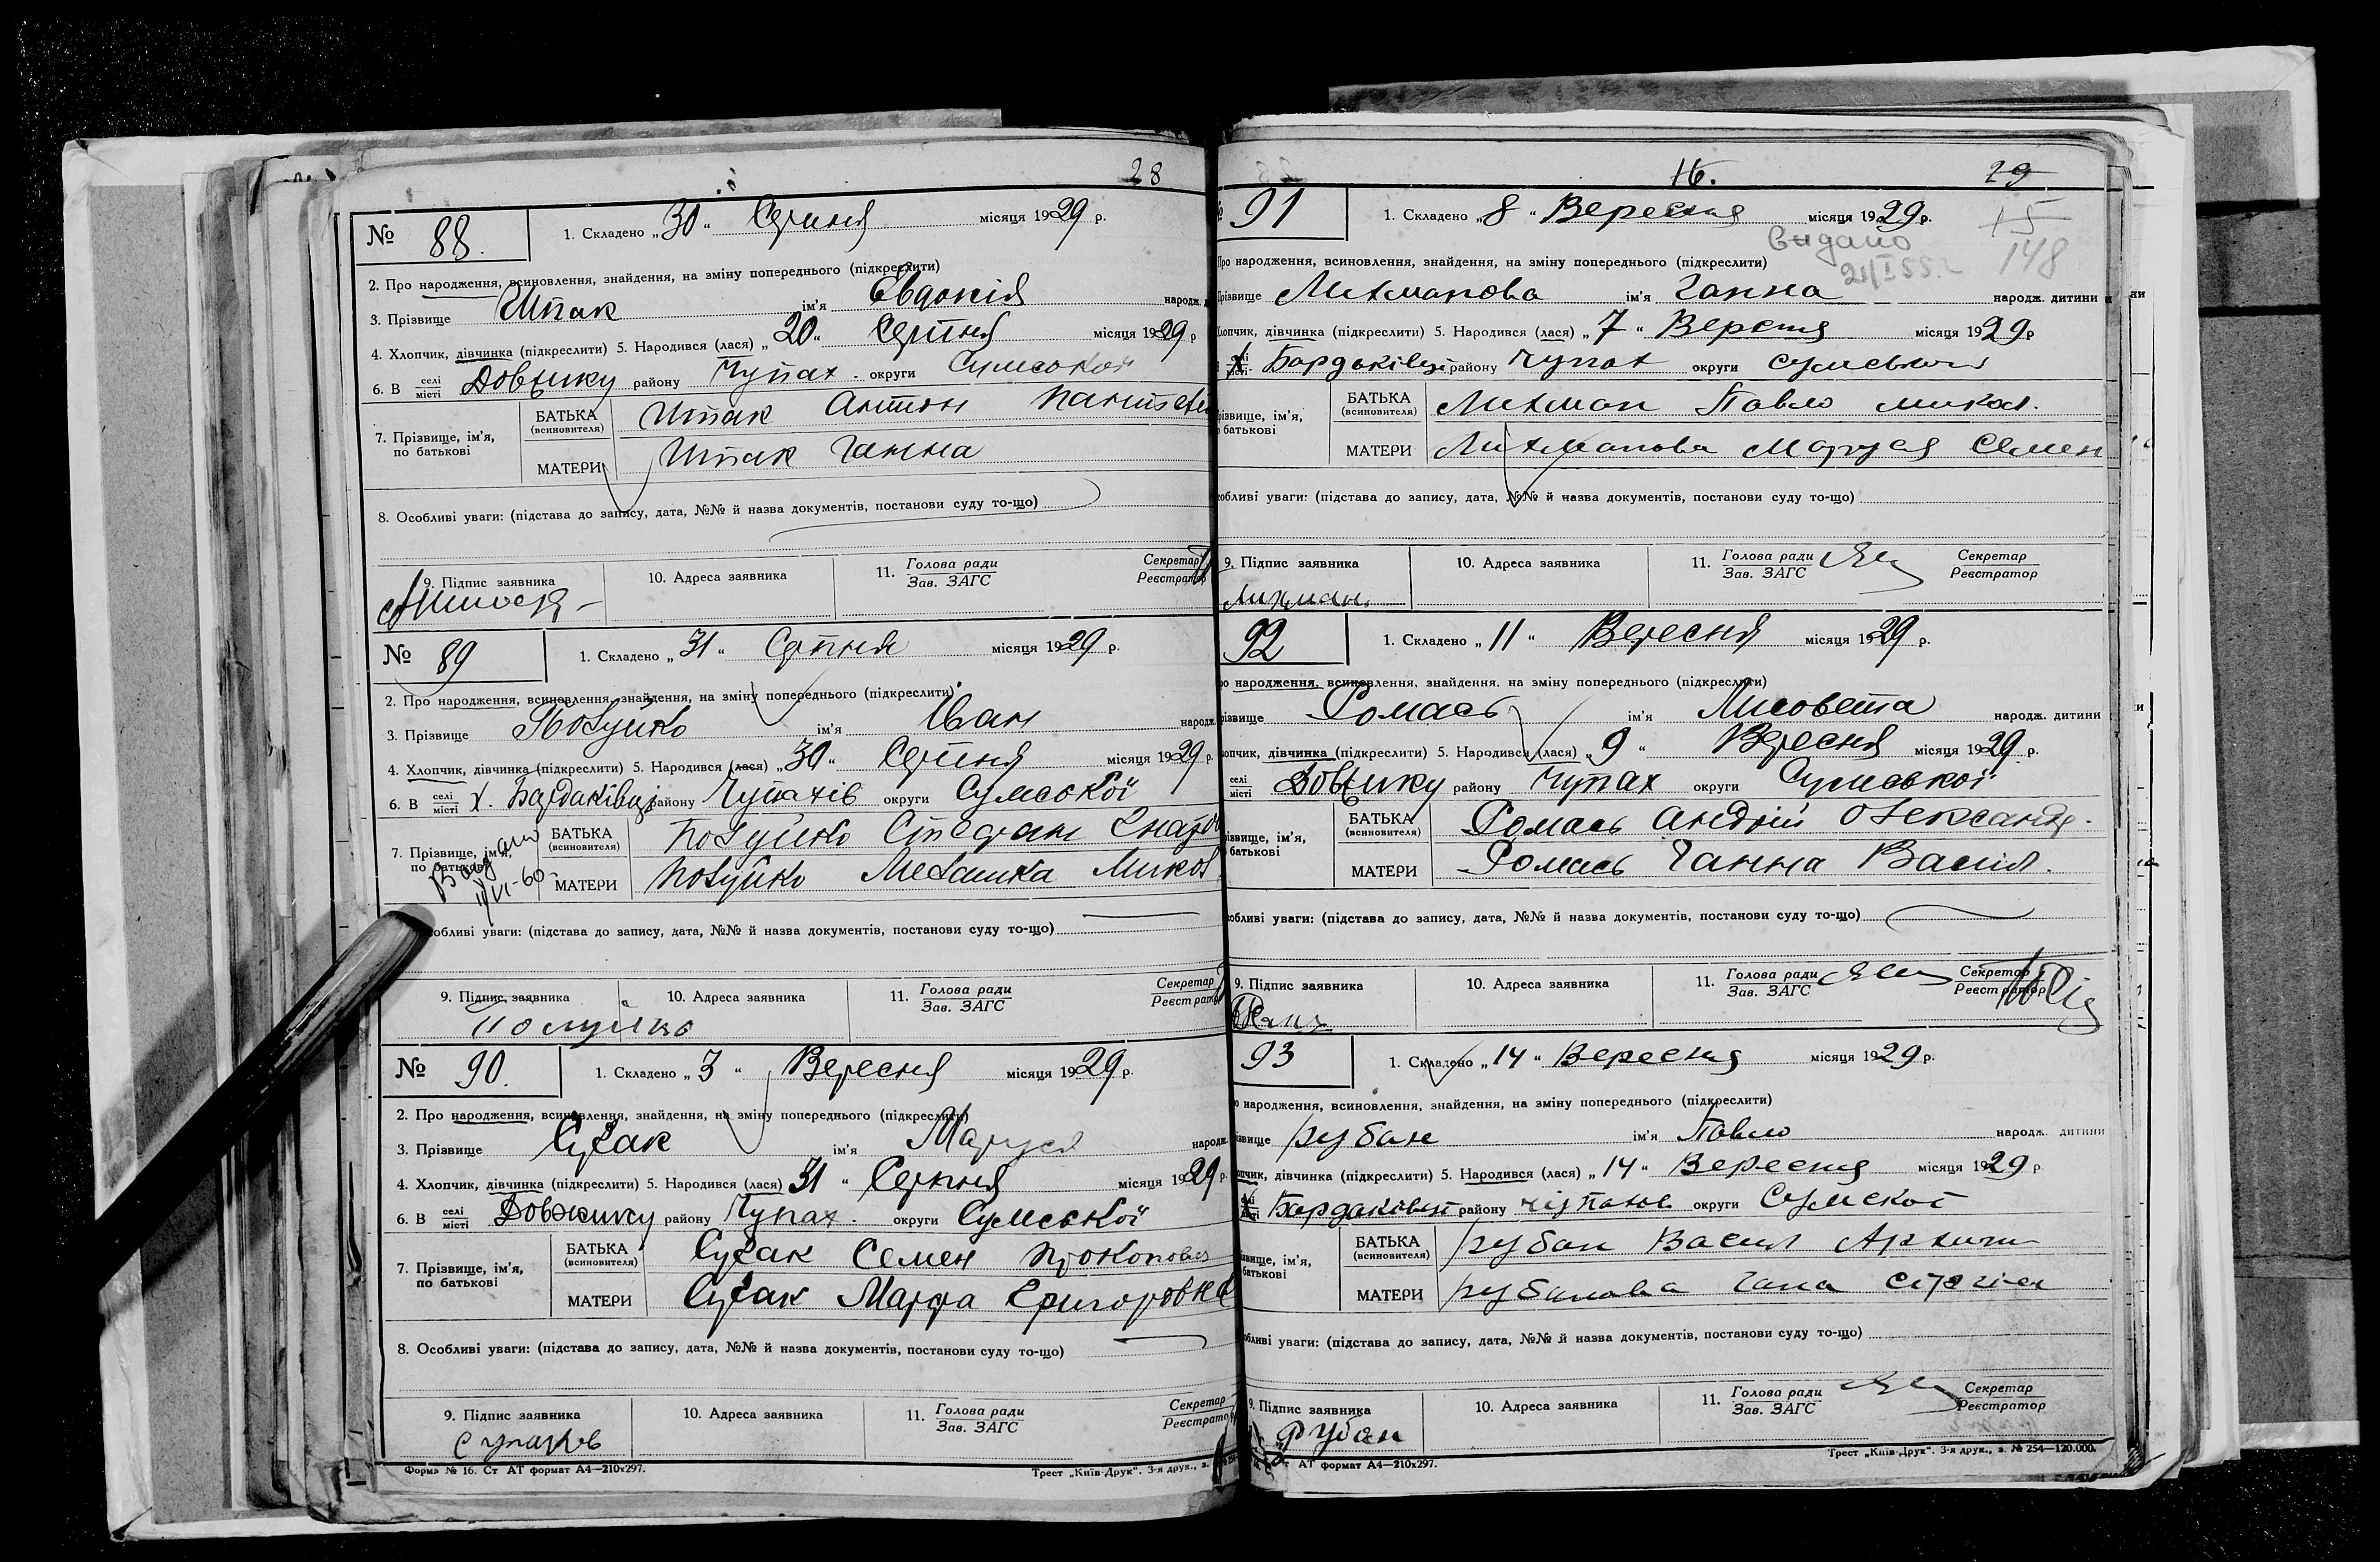 28
№ 88. 1. Складено „30“ Серпня місяця 1929 р.
2. Про народження, всиновлення, знайдення, на зміну попереднього (підкреслити)
3. Прізвище Шпак ім'я Євдокія народж.
4. Хлопчик, дівчинка (підкреслити) 5. Народився (лася) „20“ Серпня місяця 1929 р
6. В селі місті Довжику району Чупах. округи Сумської
7. Прізвище, ім'я, по батькові БАТЬКА (всиновителя) Шпак Антон
МАТЕРИ Шпак Ганна
8. Особливі уваги: (підстава до запису, дата, №№ й назва документів, постанови суду то-що)
9. Підпис заявника 10. Адреса заявника 11. Голова ради Зав. ЗАГС Секретар Реєстратор
№ 89 1. Складено „31“ Серпня місяця 1929 р.
2. Про народження, всиновлення, знайдення, на зміну попереднього (підкреслити)
3. Прізвище Полуйко ім'я Іван народж.
4. Хлопчик, дівчинка (підкреслити) 5. Народився (лася) „30“ Серпня місяця 1929 р.
6. В селі місті х. Бардаківці району Чупахів округи Сумської
7. Прізвище, ім'я, по батькові БАТЬКА (всиновителя) Полуйко Степан
МАТЕРИ Полуйко Мелашка Микол
Видано
8. Особливі уваги: (підстава до запису, дата, №№ й назва документів, постанови суду то-що)
9. Підпис заявника 10. Адреса заявника 11. Голова ради Зав. ЗАГС Секретар Реєстратор
Полуйко
№ 90. 1. Складено „3“ Вересня місяця 1929 р.
2. Про народження, всиновлення, знайдення, на зміну попереднього (підкреслити)
3. Прізвище ім'я Маруся народж.
4. Хлопчик, дівчинка (підкреслити) 5. Народився (лася) 31 “ Серпня місяця 1929 р.
6. В селі місті Довжику району Чупах. округи Сумської
7. Прізвище, ім'я, по батькові БАТЬКА (всиновителя) Семен Прокопович
МАТЕРИ Марфа Григоровна
8. Особливі уваги: (підстава до запису, дата, №№ й назва документів, постанови суду то-що)
9. Підпис заявника 10. Адреса заявника 11. Голова ради Зав. ЗАГС Секретар Реєстратор
Форма № 16. Ст АТ формат А4—210х297. Трест „Київ-Друк“. 3-я друк., з.
16. 29
91 1. Складено „8“ Вересня місяця 1929 р.
15
Видано
21/I 55 г
148
Про народження, всиновлення, знайдення, на зміну попереднього (підкреслити)
Прізвище Лихманова ім'я Ганна народж. дитини
Хлопчик, дівчинка (підкреслити) 5. Народився (лася) „7“ Вересня місяця 1929 р
селі місті х Бардаківці району Чупах округи Сумської
Прізвище, ім'я, по батькові БАТЬКА (всиновителя) Лихман Павло Микол.
МАТЕРИ Лихманова Маруся Семен
Особливі уваги: (підстава до запису, дата, №№ й назва документів, постанови суду то-що)
9. Підпис заявника 10. Адреса заявника 11. Голова ради Зав. ЗАГС Секретар Реєстратор
Лихман.
92 1. Складено „11“ Вересня місяця 1929 р.
Про народження, всиновлення, знайдення, на зміну попереднього (підкреслити)
Прізвище Ромась ім'я Лисовета народж. дитини
Хлопчик, дівчинка (підкреслити) 5. Народився (лася) „9“ Вересня місяця 1929 р.
селі місті Довжику району Чупах округи Сумської
Прізвище, ім'я, по батькові БАТЬКА (всиновителя) Ромась Андрій Олександр.
МАТЕРИ Ромась Ганна Васил.
Особливі уваги: (підстава до запису, дата, №№ й назва документів, постанови суду то-що)
9. Підпис заявника 10. Адреса заявника 11. Голова ради Зав. ЗАГС Секретар Реєстратор
93 1. Складено „14“ Вересня місяця 1929 р.
Про народження, всиновлення, знайдення, на зміну попереднього (підкреслити)
Прізвище Рубан ім'я Павло народж. дитини
Хлопчик, дівчинка (підкреслити) 5. Народився (лася) „14“ Вересня місяця 1929 р
селі місті х Бардаківці району округи Сумскої
Прізвище, ім'я, по батькові БАТЬКА (всиновителя) Рубан Васил
МАТЕРИ Рубанова Гана
Особливі уваги: (підстава до запису, дата, №№ й назва документів, постанови суду то-що)
9. Підпис заявника 10. Адреса заявника 11. Голова ради Зав. ЗАГС Секретар Реєстратор
Рубан
АТ формат А4—210х297. Трест „Київ-Друк“. 3-я друк., з. № 254—120.000.